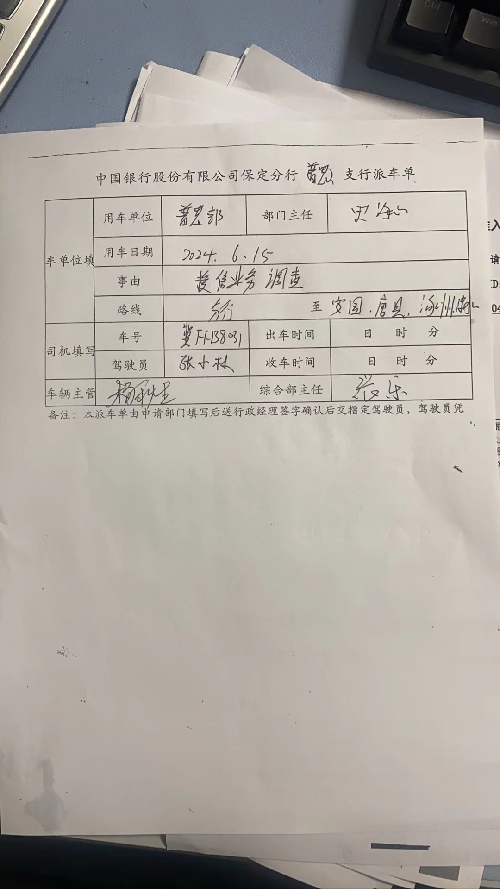 中国银行股份有限公司保定分行 普惠 支行派车单
车单位填 用车单位 普惠部 部门主任
用车日期 2024.6.15
事由 授信业务调查
路线 分行 至安国.唐县.
司机填写 车号 出车时间 日 时 分
驾驶员 张小 收车时间 日 时 分
车辆主管 综合部主任
备注：本派车单由申请部门填写后送行政经理签字确认后交指定驾驶员，驾驶员凭